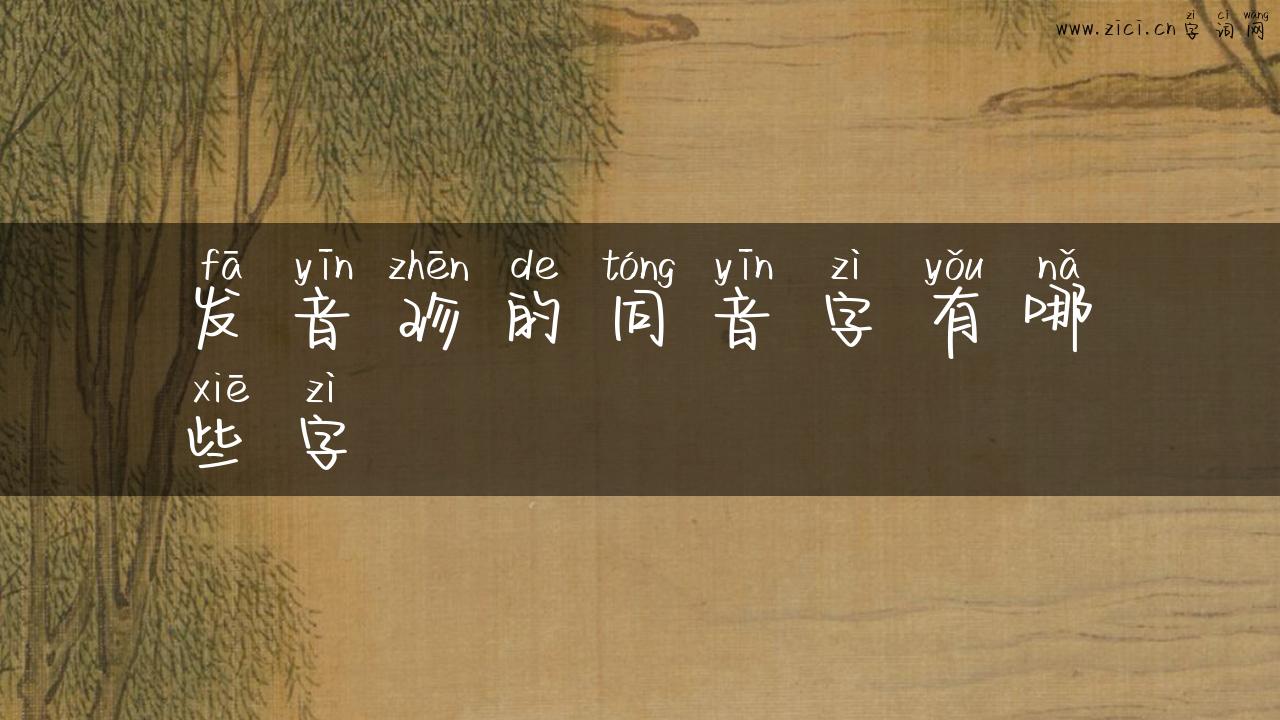 zì cí wǎng
www.zici.cn 字词网
fā yīn zhēn de tóng yīn zì yǒu nǎ
发音珍的同音字有哪
xiē zì
些字